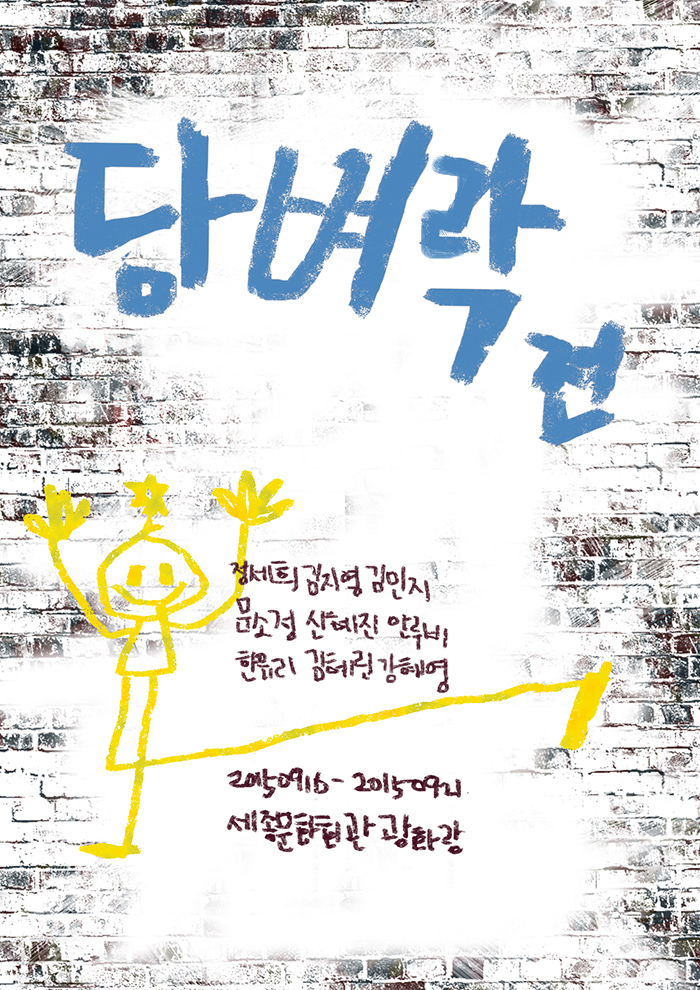 담벼락
전
정세희 김지영 김민지
문소정 신혜진 안루비
한유리 김혜린 강혜영
20150916-20150921
세종문화회관 광화랑